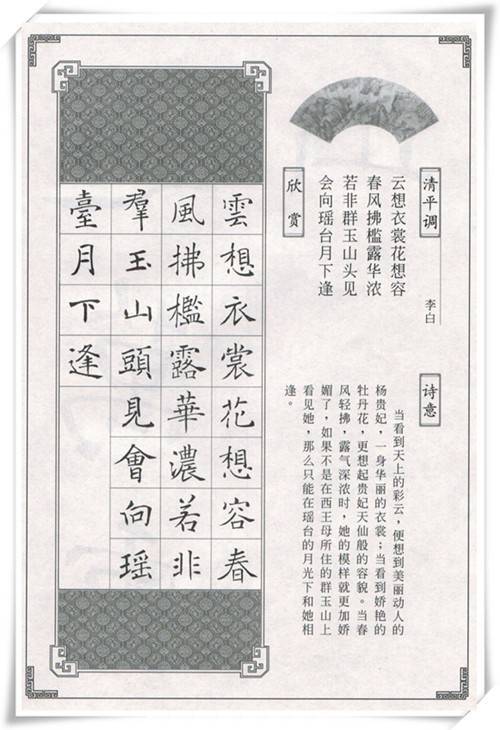 清平调
李白
云想衣裳花想容
春风拂槛露华浓
若非群玉山头见
会向瑶台月下逢
诗意
当看到天上的彩云，便想到美丽动人的
杨贵妃，一身华丽的衣裳；当看到娇艳的
牡丹花，更想起贵妃天仙般的容貌。当春
风轻拂，露气深浓时，她的模样就更加娇
媚了，如果不是在西王母所住的群玉山上
看见她，那么只能在瑶台的月光下和她相
逢。
欣赏
雲想衣裳花想容春
風拂檻露華濃若非
羣玉山頭見會向瑶
臺月下逢